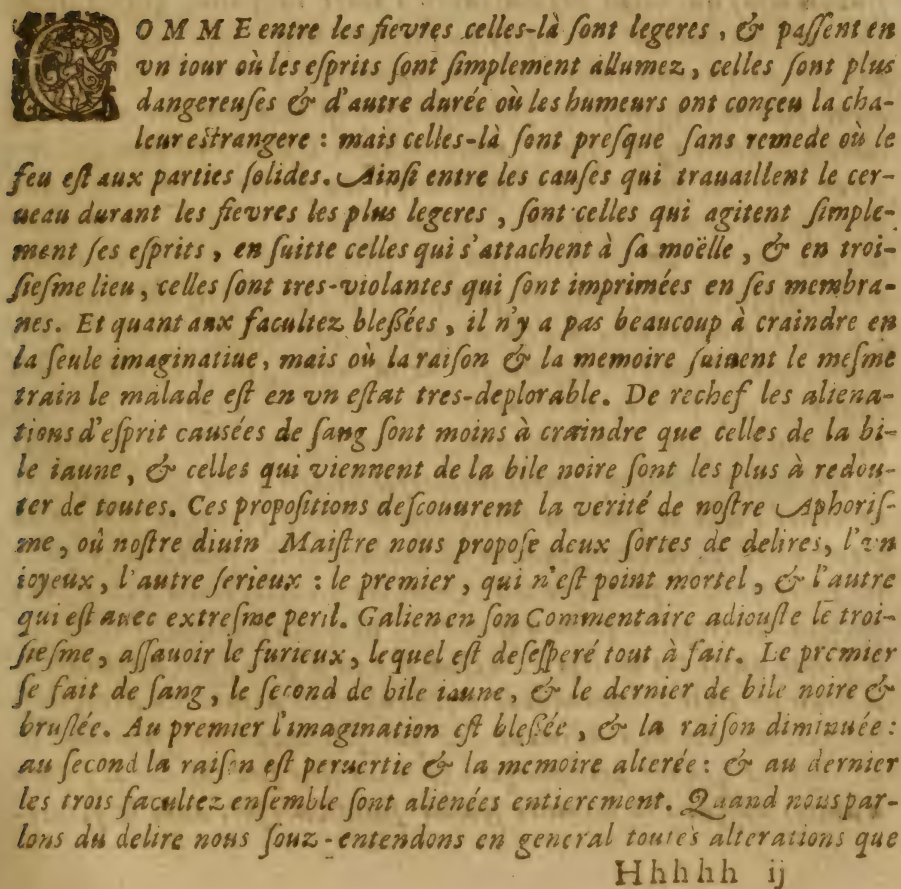 COMME entre les fievres celles-là ſont legeres, & paſſent en
vn iour où les eſprits ſont ſimplement allumez, celles ſont plus
dangereuſes & d'autre durée où les humeurs ont conçeu la cha-
leur eſtrangere : mais celles-là ſont preſque ſans remede où le
feu eſt aux parties ſolides. Ainſi entre les cauſes qui trauaillent le cer-
ueau durant les fievres les plus legeres, ſont celles qui agitent ſimple-
ment ſes eſprits, en ſuitte celles qui s'attachent à ſa moëlle, & en troi-
ſieſme lieu, celles ſont tres-violantes qui ſont imprimées en ſes membra-
nes. Et quant aux facultez bleßées, il n'y a pas beaucoup à craindre en
la ſeule imaginatiue, mais où la raiſon & la memoire ſuiuent le meſme
train le malade eſt en vn eſtat tres-deplorable. De rechef les aliena-
tions d'eſprit causées de ſang ſont moins à craindre que celles de la bi-
le iaune, & celles qui viennent de la bile noire ſont les plus à redou-
ter de toutes. Ces propoſitions deſcouurent la verité de noſtre Aphoriſ-
me, où noſtre diuin Maiſtre nous propoſe deux ſortes de delires, l'vn
ioyeux, l'autre ſerieux : le premier, qui n'eſt point mortel, & l'autre
qui eſt auec extreſme peril. Galien en ſon Commentaire adiouſte le troi-
ſieſme, aſſauoir le furieux, lequel eſt deſeſperé tout à fait. Le premier
ſe fait de ſang, le ſecond de bile iaune, & le dernier de bile noire &
bruſlée. Au premier l'imagination eſt bleßée, & la raiſon diminuée :
au ſecond la raiſon eſt peruertie & la memoire alterée : & au dernier
les trois facultez enſemble ſont alienées entierement. Quand nous par-
lons du delire nous ſouz-entendons en general toutes alterations que
Hhhhh ij